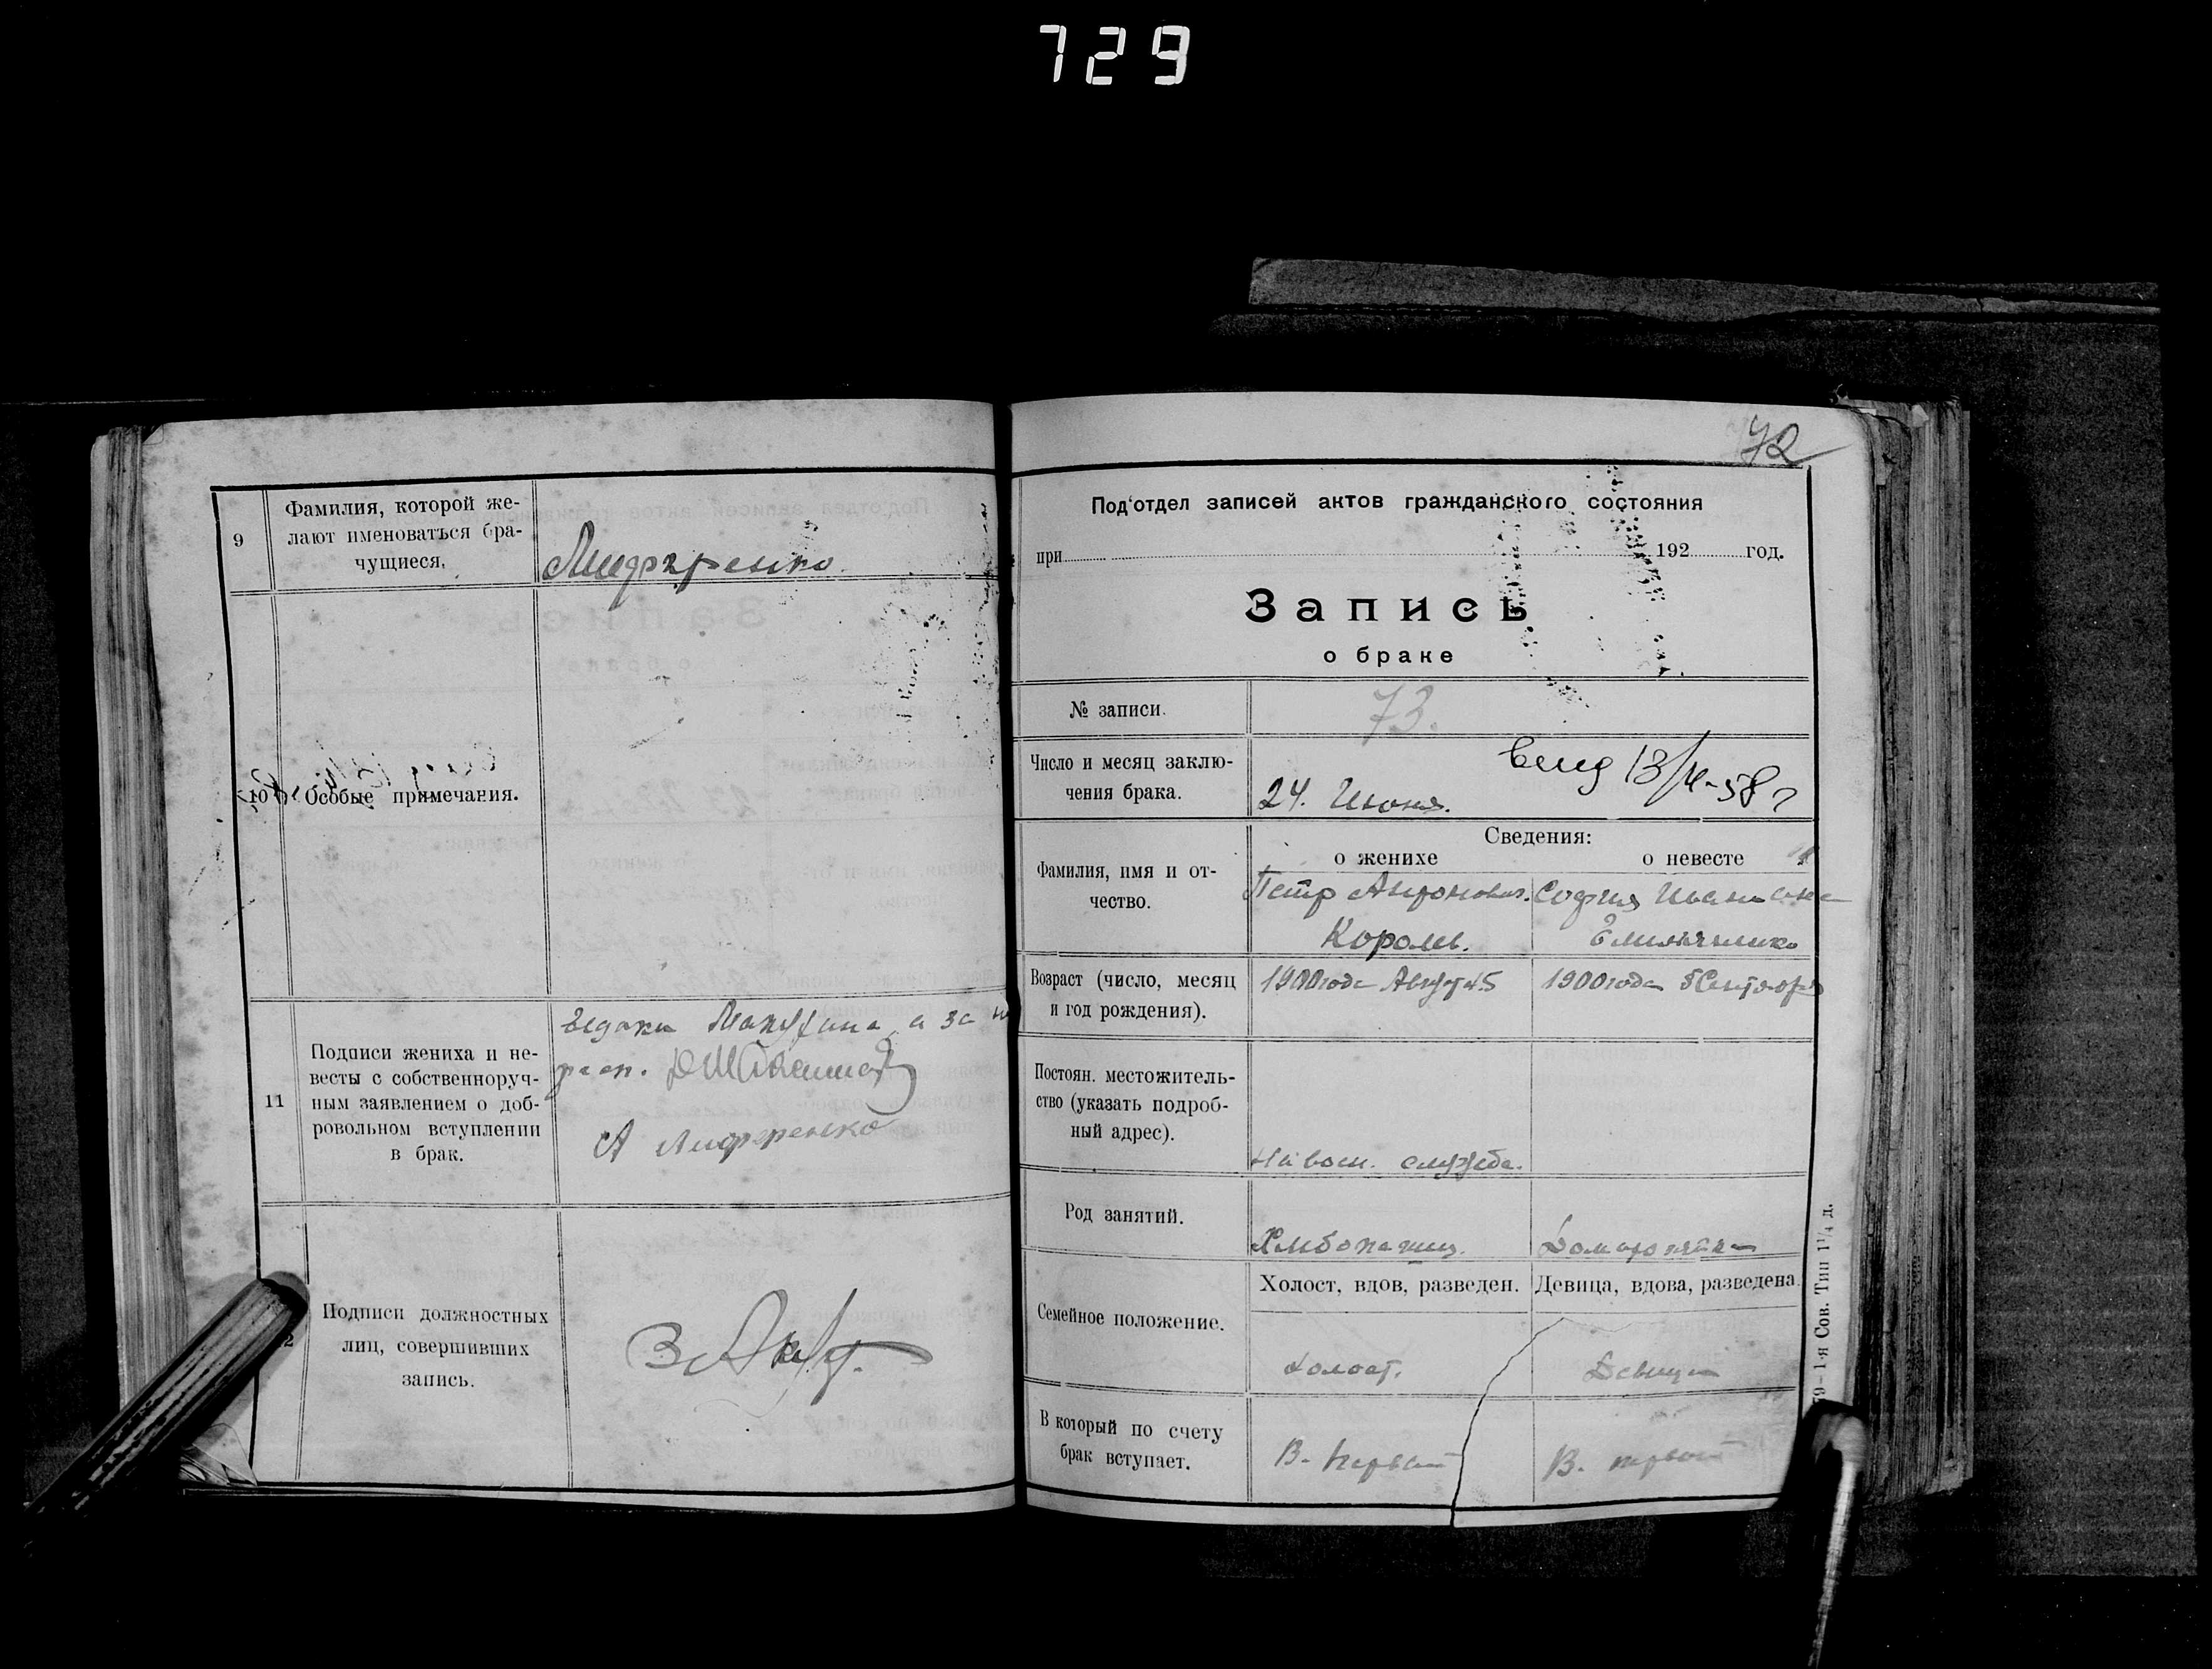 729
9
Фамилия, которой же-
лают именоваться бра-
чущиеся,
10
Особые примечания.
11
Подписи жениха и не-
весты с собственноруч-
ным заявлением о доб-
ровольном вступлении
в брак.
а за
А Лифренко
Подписи должностных
лиц, совершивших
запись.
72
Под‘отдел записей актов гражданского состояния
при 192 год.
Запись
о браке
№ записи. 73.
Число и месяц заклю-
чения брака.
24. Июня.
13/4-58 г
Сведения:
о женихе о невесте
Фамилия, имя и от-
чество.
Петр София Ивановна
Королев.
Возраст (число, месяц
и год рождения).
1900 года Август 5 1900 года 5 Сентября
Постоян. местожитель-
ство (указать подроб-
ный адрес).
На воен. служба.
Род занятий.
Хлебопашец
Семейное положение.
Холост, вдов, разведен. Девица, вдова, разведена.
холост. Девица
В который по счету
брак вступает.
В. первый В. первый
79-1-я Сов. Тип 1¹/₄ д.